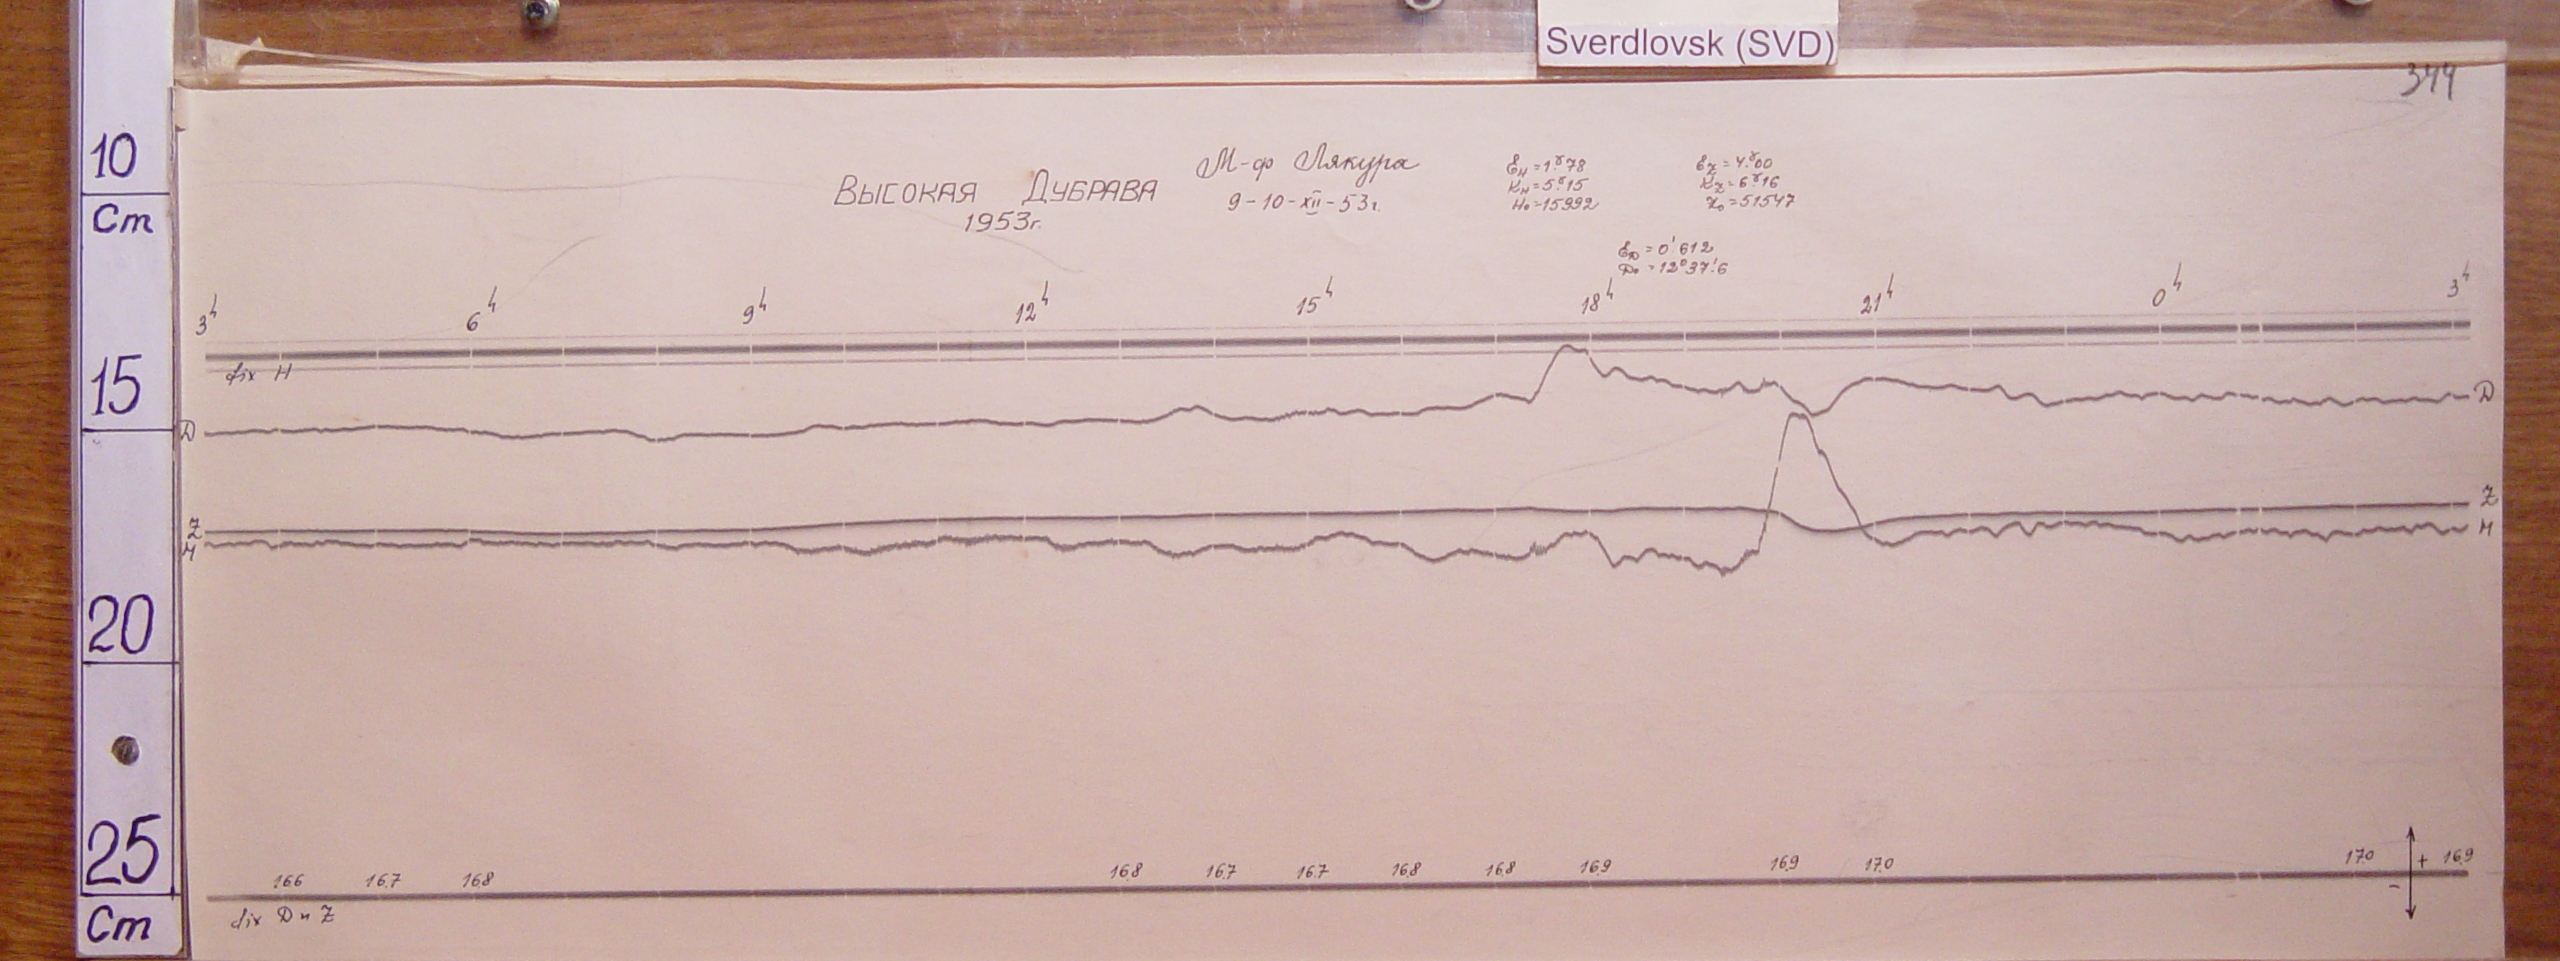 Sverdlovsk (SVD)
344
10
Cm
15
20
25
Cm
Высокая Дубрава
1953г.
М-ф Лякура
9-10-XII-53г.
Ԑн=1.ˠ78
Kн=5.ˠ15
H₀=15992
Ԑz=4.ˠ00
Kz=6.ˠ16
Z₀=51547
ԐD=0'612
D₀=12°37.'6
3ʰ 6ʰ 9ʰ 12ʰ 15ʰ 18ʰ 21ʰ 0ʰ 3ʰ
fix H
D D
Z Z
H H
16.6 16.7 16.8 16.8 16.7 16.7 16.8 16.8 16.9 16.9 17.0 17.0 + 16.9
-
fix D и Z